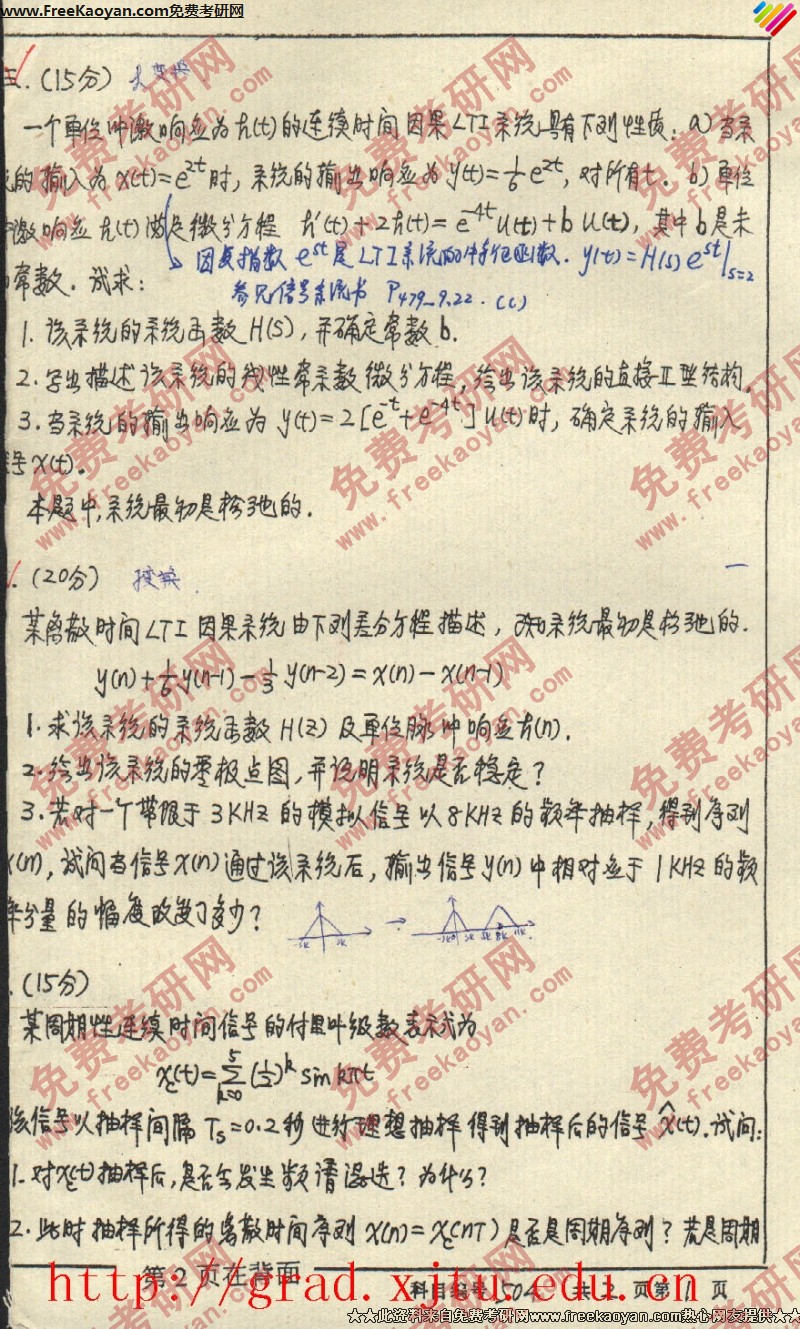 www.FreeKaoyan.com免费考研网
五.(15分) 变换
一个单位冲激响应为h(t)的连续时间因果LTI系统具有下列性质:a)当系
的输入为x(t)=e^{2t}时,系统的输出响应为y(t)=1/6 e^{2t},对所有t。b)单位
激响应h(t)满足微分方程 h'(t)+2h(t)=e^{-4t}u(t)+b u(t),其中b是未
因复指数 e^{st} 是LTI系统的特征函数. y(t)=H(s)e^{st}|_{s=2}
常数.试求:
参见信号系统书 P479-9.22.(c)
1.该系统的系统函数H(s),并确定常数b.
2.写出描述该系统的线性常系数微分方程,给出该系统的直接Ⅱ型结构.
3.当系统的输出响应为 y(t)=2[e^{-t}+e^{-4t}]u(t)时,确定系统的输入
号x(t)。
本题中,系统最初是松弛的.
.(20分)
某离散时间LTI因果系统由下列差分方程描述,已知系统最初是松弛的.
y(n)+1/6 y(n-1)-1/3 y(n-2)=x(n)-x(n-1)
1.求该系统的系统函数H(z)及单位脉冲响应h(n).
2.给出该系统的零极点图,并说明系统是否稳定?
3.若对一个带限于3KHz的模拟信号以8KHz的频率抽样,得到序列
x(n),试问当信号x(n)通过该系统后,输出信号y(n)中相对应于1KHz的频
率分量的幅度改变了多少?
.(15分)
某周期性连续时间信号的付里叶级数表示式为
x_c(t)=∑_{k=0}^{5}(1/2)^k sin kπt
该信号以抽样间隔Ts=0.2秒进行理想抽样得到抽样后的信号x̂(t).试问:
1.对x_c(t)抽样后,是否会发生频谱混迭?为什么?
2.此时抽样所得的离散时间序列x(n)=x_c(nT)是否是周期序列?若是周期
第2页在背面
科目编号 504 共2页第1页
http://grad.xjtu.edu.cn
★★此资料来自免费考研网www.freekaoyan.com热心网友提供★★
免费考研网
www.freekaoyan.com